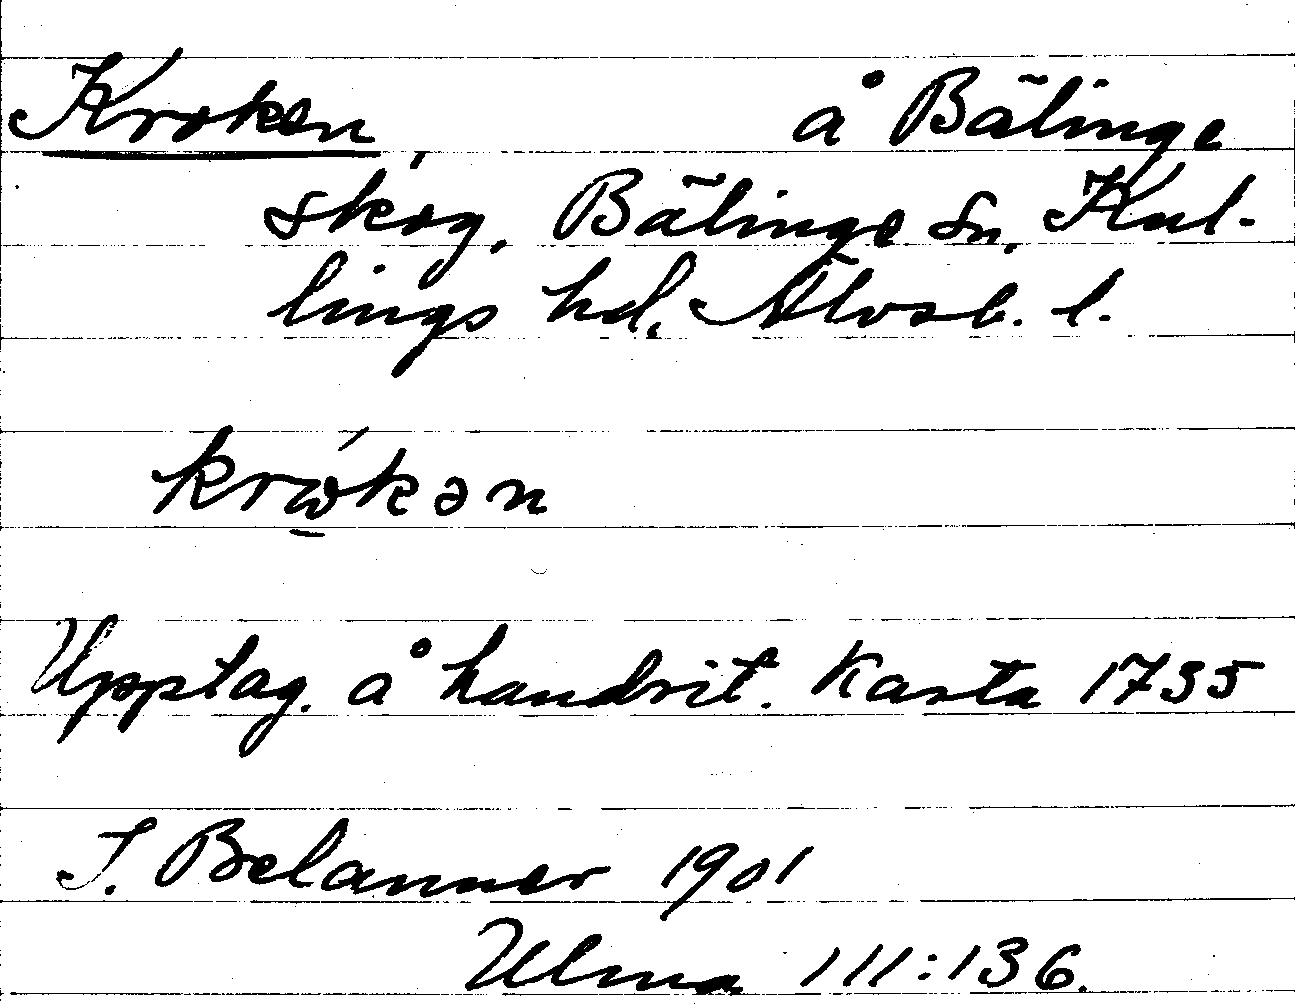 Kroken, å Bälinge
skog, Bälinge sn, Kul-
lings hd, Älvsb. l.
krώ̱kən
Upptag. å handrit. karta 1735
T. Belanner 1901
Ulma 111:136.